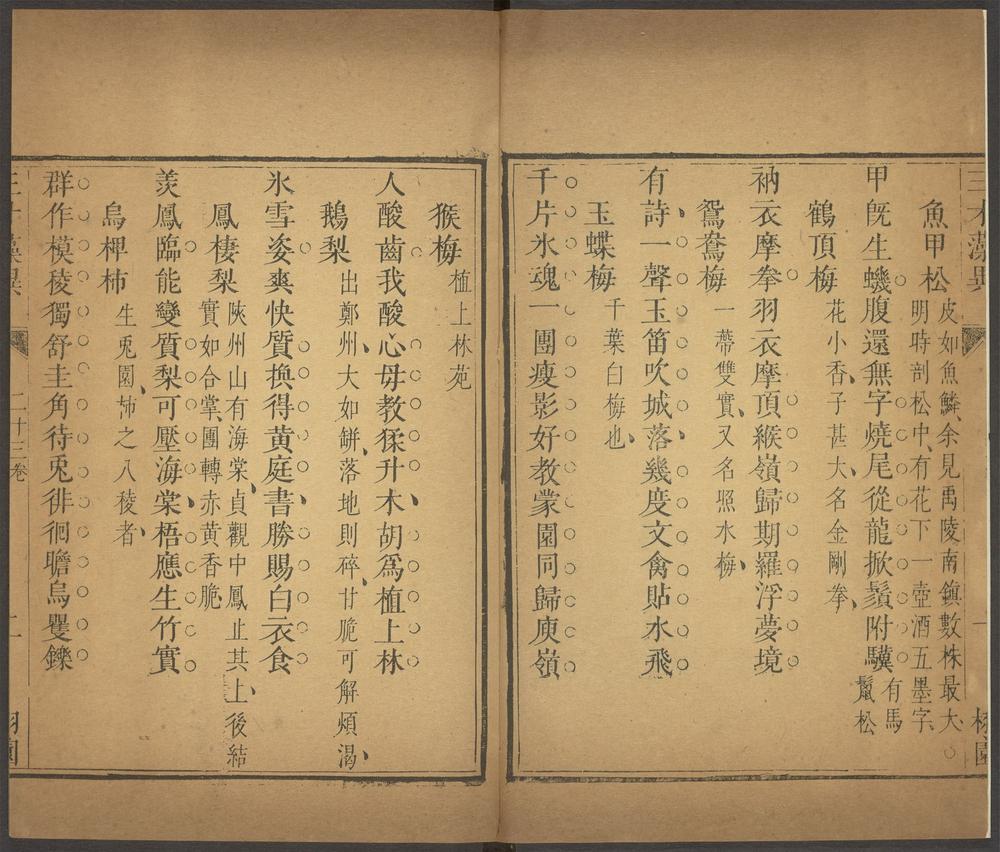 魚甲松 皮如魚鱗余見禹陵南鎮數株最大
明時剖松中有花下一壺酒五墨字
甲旣生蟣腹還無字燒尾從龍掀鬚附驥 有馬
鬣松
鶴頂梅 花小香子甚大名金剛拳
衲衣摩拳羽衣摩頂緱嶺歸期羅浮夢境
鴛鴦梅 一蔕雙實又名照水梅
有詩一聲玉笛吹城落幾度文禽貼水飛
玉蝶梅 千葉白梅也
千片氷魂一團瘦影好教蒙園同歸庾嶺
猴梅 植上林苑
人酸齒我酸心毋教猱升木胡爲植上林
鵝梨 出鄭州大如缾落地則碎甘脆可解煩渴
氷雪姿爽快質換得黄庭書勝賜白衣食
鳳棲梨 陜州山有海棠貞觀中鳳止其上後結
實如合掌團轉赤黄香脆
羡鳳臨能變質梨可壓海棠梧應生竹實
烏椑柿 生兎園柿之八稜者
群作模稜獨舒圭角待兎徘徊瞻烏矍鑠
二十三卷
二